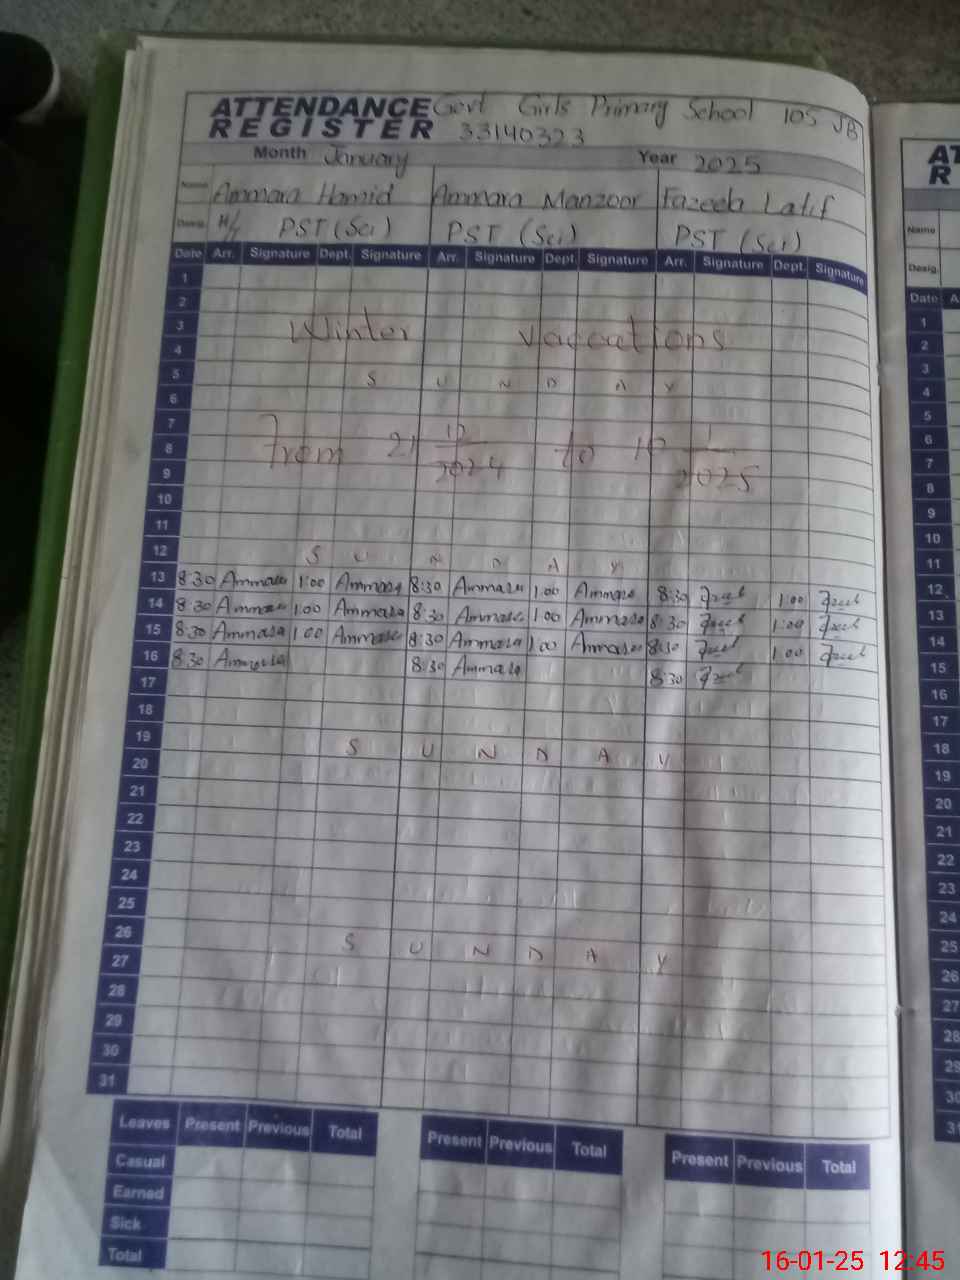 ATTENDANCE Govt Girls Primary School 105 JB
REGISTER 33140323
Month January Year 2025
Name Ammara Hamid Ammara Manzoor Fazeela Latif
Desig. H/T PST (Sci) PST (Sci) PST (Sci)
Date Arr. Signature Dept. Signature Arr. Signature Dept. Signature Arr. Signature Dept. Signature
1
2
3 Winter vacations
4
5 S U N D A Y
6
7
8 From 21 12 2024 to 10 1 2025
9
10
11
12 S U N D A Y
13 8:30 Ammara 1:00 Ammara 8:30 Ammara 1:00 Ammara 8:30 1:00
14 8:30 Ammara 1:00 Ammara 8:30 Ammara 1:00 Ammara 8:30 1:00
15 8:30 Ammara 1:00 Ammara 8:30 Ammara 1:00 Ammara 8:30 1:00
16 8:30 Ammara 8:30 Ammara 8:30
17
18
19 S U N D A Y
20
21
22
23
24
25
26 S U N D A Y
27
28
29
30
31
Leaves Present Previous Total Present Previous Total Present Previous Total
Casual
Earned
Sick
Total
AT
R
Name
Desig.
Date A
1
2
3
4
5
6
7
8
9
10
11
12
13
14
15
16
17
18
19
20
21
22
23
24
25
26
27
28
29
30
31
16-01-25 12:45